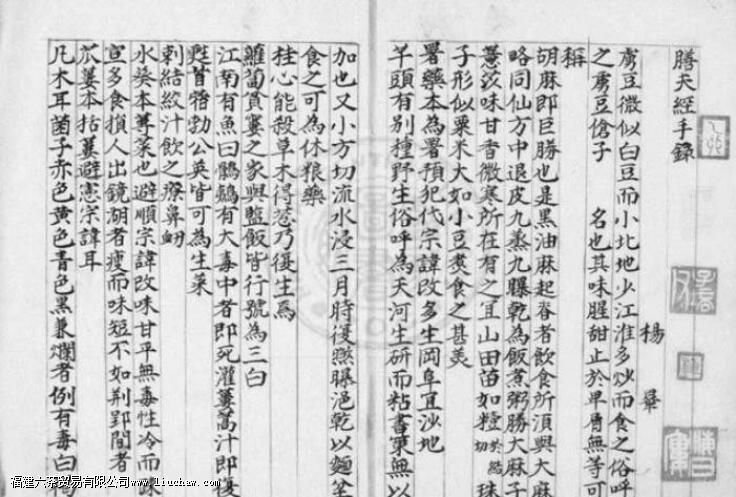 膳夫經手錄
楊曅
虜豆微似白豆而小北地少江淮多炒而食之俗呼
之虜豆傖子 名也其味腥甜止於早屑無等可
稱
胡麻即巨勝也是黑油麻起脊者飲食所湏與大麻
略同仙方中退皮九蒸九曝乾為飯煮粥勝大麻子
薏苡味甘香微寒所在有之宜山田苗如粒 珠
子形似粟米大如小豆煑食之甚美
署藥本為署預犯代宗諱改多生岡阜宜沙地
芋頭有別種野生俗呼為天河生研而粘書策無以
加也又小方切流水浸三月時復 曝浥乾以麵
食之可為休粮藥
桂心能殺草木得葱乃復生焉
蘿蔔貧寠之家與鹽飯皆行號為三白
江南有魚曰 有大毒中者即死灌薑蒿汁即復
甦苜蓿勃公英皆可為生菜
刺結絞汁飲之療鼻衂
水葵本蓴菜也避順宗諱改味甘平無毒性冷而踈
宣多食損人出鏡湖者瘦而味短不如荆郢間者
苽蔞本括蔞避憲宗諱耳
凡木耳菌子赤色黃色青色黑兼爛者例有毒白
福建六深贸易有限公司 www.liuchaw.com